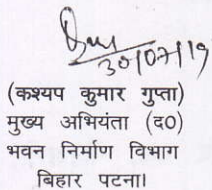 30/07/19
(कश्यप कुमार गुप्ता)
मुख्य अभियंता (द०)
भवन निर्माण विभाग
बिहार पटना।